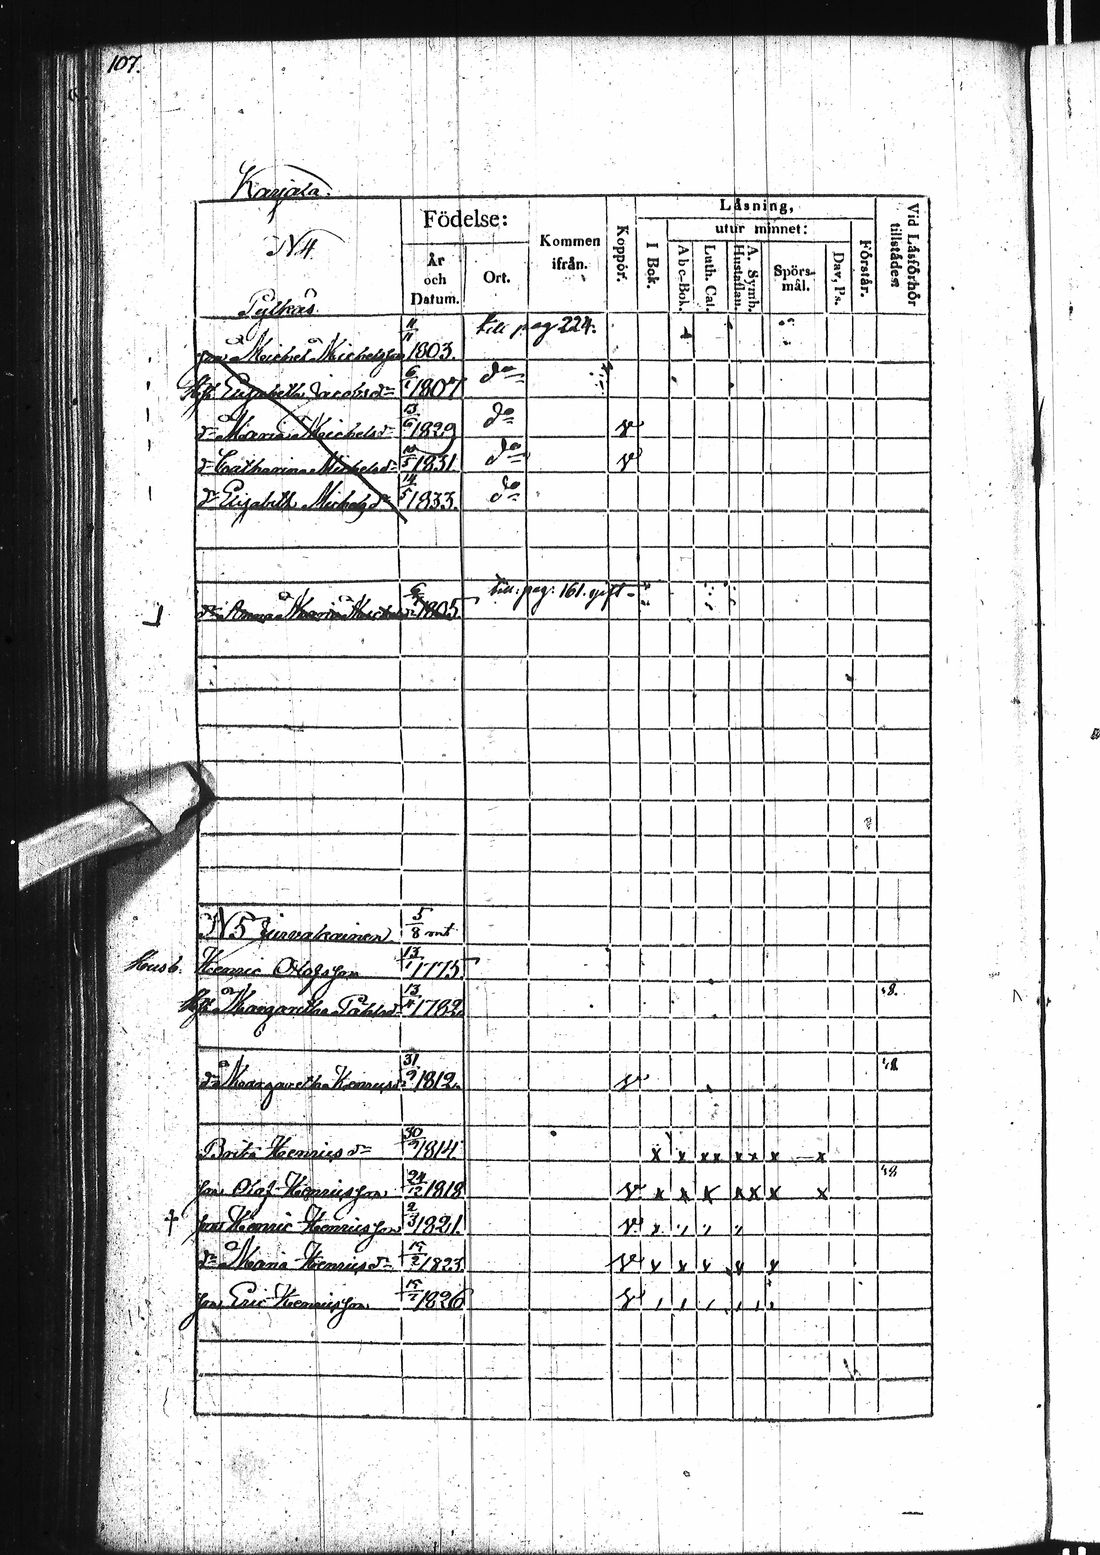 107.
Karjala.
N4
Pylkäs.
Födelse:
År och Datum.
Ort.
Kommen ifrån.
Koppor.
Låsning,
utur minnet:
I Bok.
Abc-Bok.
Luth. Cal.
A. Symb. Hustaflan.
Spörs-mål.
Dav. Ps.
Förstår.
Vid Låsförhör tillstådes
son Michel Michelsson 11/11 1803. till pag 224.
Elisabetha Jacobsdr 6/1 1807 do
dr Maria Michelsdr 13/6 1829 do v
dr Catharina Michelsdr 1831. do v
dr Elisabeth Michelsdr 14/5 1833. do
dr Anna Maria 1805. till pag: 161. gift
N5 5/8 mt
Husb. Henric Olofsson 13/1 1775
Margaretha 13/11 1782 48.
dr Margaretha Henricsdr 31/9 1812. v 48
Brita Henricsdr 30/9 1814 x x x x x x x x
son Olof Henricsson 24/12 1818 v x x x x x x x 48
† son Henric Henricsson 2/3 1821. v
dr Maria Henricsdr 15/2 1823 v x x x x x
son Eric Henricsson 1826 v